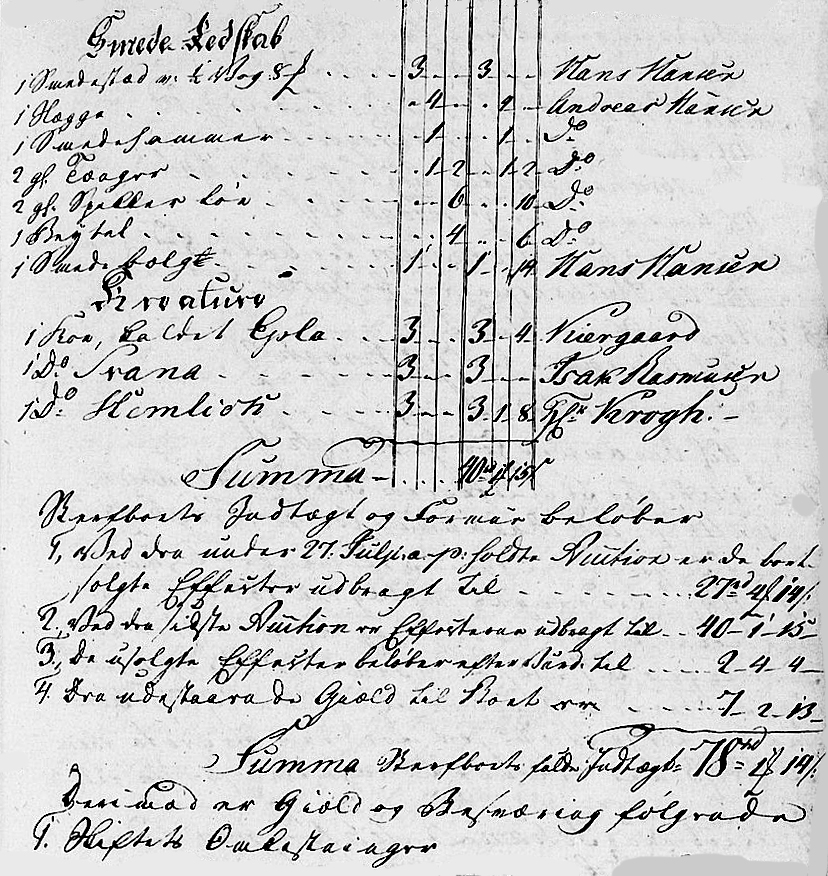 Smede Redskab
1 Smedestæd v: ½ Vog 8 ₰ . . . . 3 . . . 3 . . . Hans Hansen
1 Slægge . . . . 4 . . . 4 . . Andreas Hansen
1 Smedehammer . . . . 1 . . . 1 . . Do
2 gl. Tænger . . . . 1 2 . . 1 2 Do
2 gl. . . . . 6 . . . 10 Do
1 . . . . 4 . . . 6 Do
1 Smede bælg . . . . 1 . . . 1 . . 14 Hans Hansen
Kreature
1 Koe, kaldet Gola . . . 3 . . . 3 . . 4 Kiergaard
1 Do Svana . . . . 3 . . . 3 . . . Isak Rasmusen
1 Do Hemlich . . . . 3 . . . 3 1 8 Krogh. –
Summa – . . . . 40rd 1 ₰ 15 ß
Sterfboets Indtægt og Formue beløber
1, Ved den under 27. Julj a. p. holdte Auction er de bort
solgte Effecter udbragt til . . . . . . 27rd 4 ₰ 14 ß
2, Ved den sidste Auction er Effecterne udbragt til . . 40 – 1 – 15 –
3, De usolgte Effecter beløber efter Vurd. til . . . . 2 – 4 – 4 –
4. Den udestaaende Giæld til Boet er . . . . 7 – 2 – 13 –
Summa Sterfboets fulde Indtægt = 78rd = 1 ₰ 14 ß
Derimod er Giæld og Besværing følgende
1. Skiftets Omkostninger